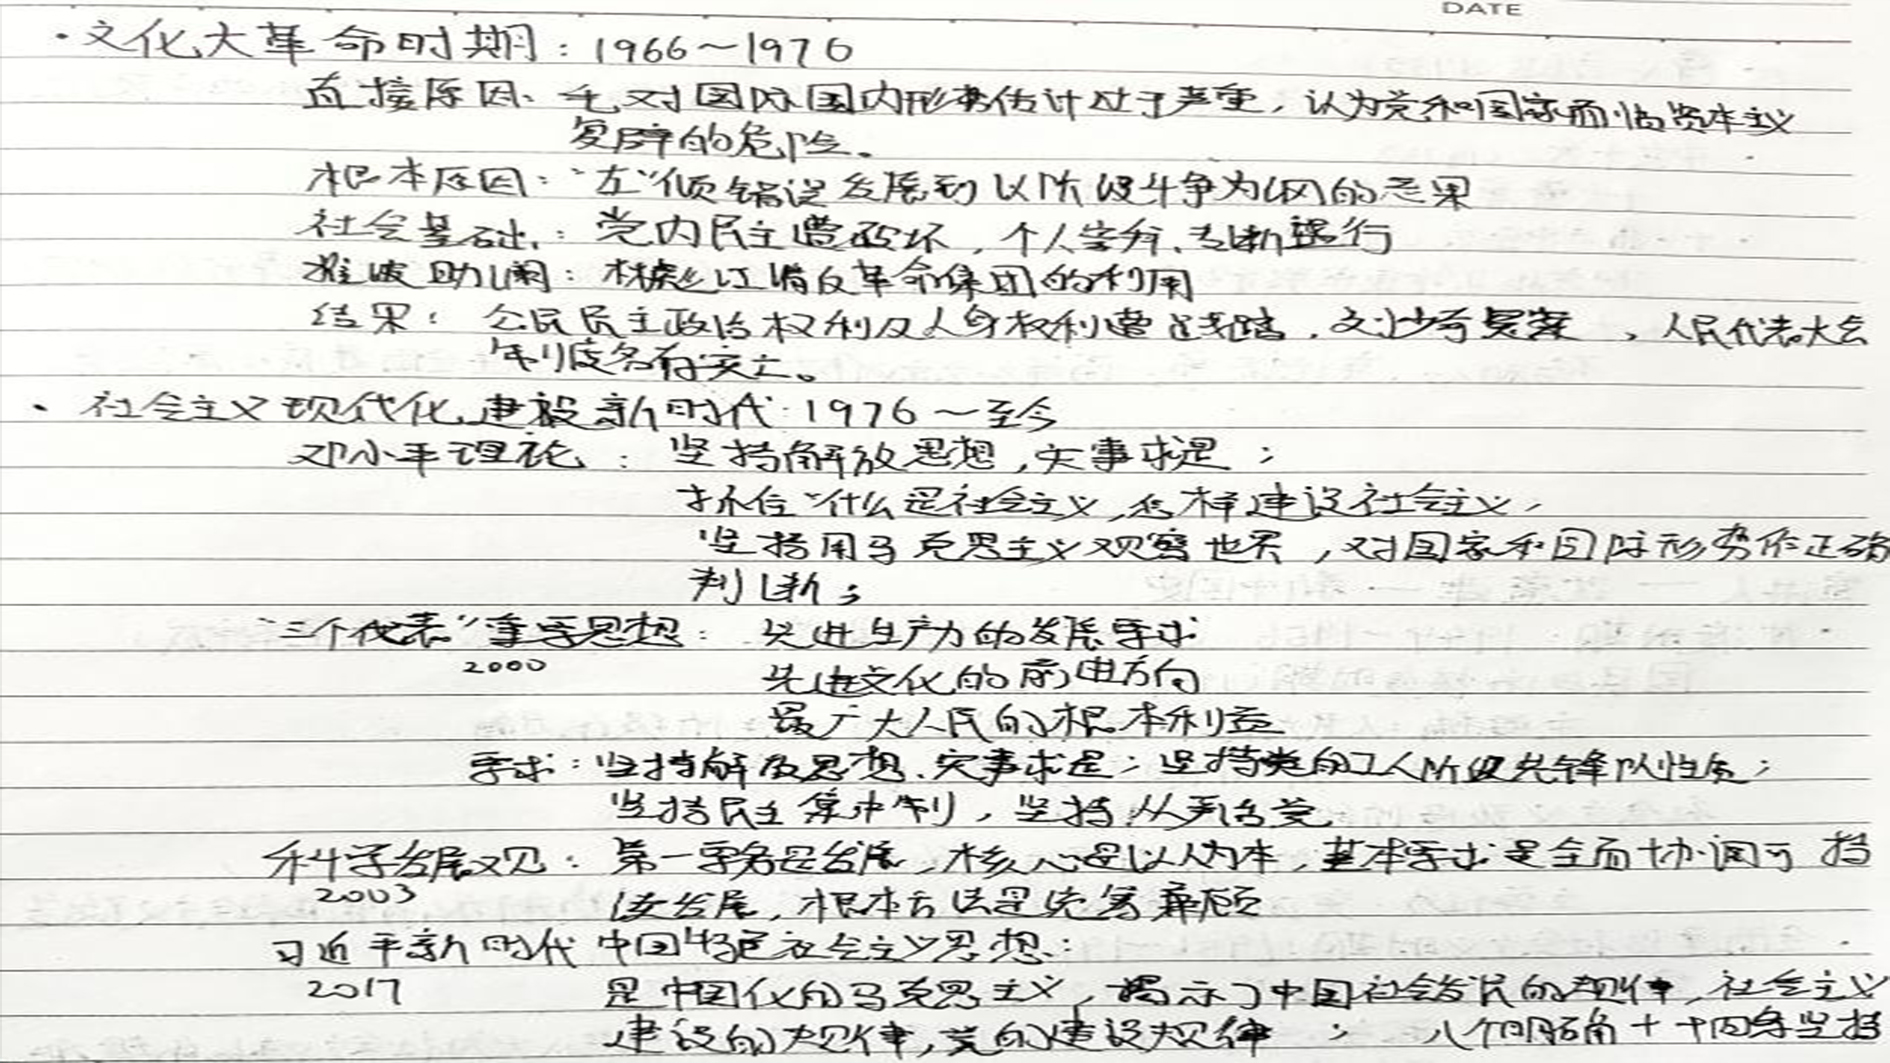 DATE
·文化大革命时期：1966～1976
直接原因：毛对国际国内形势估计过于严重，认为党和国家面临资本主义
复辟的危险。
根本原因：“左”倾错误发展到以阶级斗争为纲的恶果
社会基础：党内民主遭破坏，个人崇拜、专断盛行
推波助澜：林彪江青反革命集团的利用
结果：公民民主政治权利及人身权利遭践踏，冤案，人民代表大会
制度名存实亡。
·社会主义现代化建设新时代：1976～至今
邓小平理论：坚持解放思想，实事求是；
抓住“什么是社会主义，怎样建设社会主义，
坚持用马克思主义观察世界，对国家和国际形势作正确
判断；
“三个代表”重要思想：先进生产力的发展要求
2000 先进文化的前进方向
最广大人民的根本利益
要求：坚持解放思想、实事求是；坚持党的工人阶级先锋队性质；
坚持民主集中制，坚持从严治党
科学发展观：第一要务是发展，核心是以人为本，基本要求是全面协调可持
2003 续发展，根本方法是统筹兼顾
习近平新时代中国特色社会主义思想：
2017 是中国化的马克思主义，揭示了中国社会发展的规律，社会主义
建设的规律，党的建设规律；八个明确＋十四条坚持